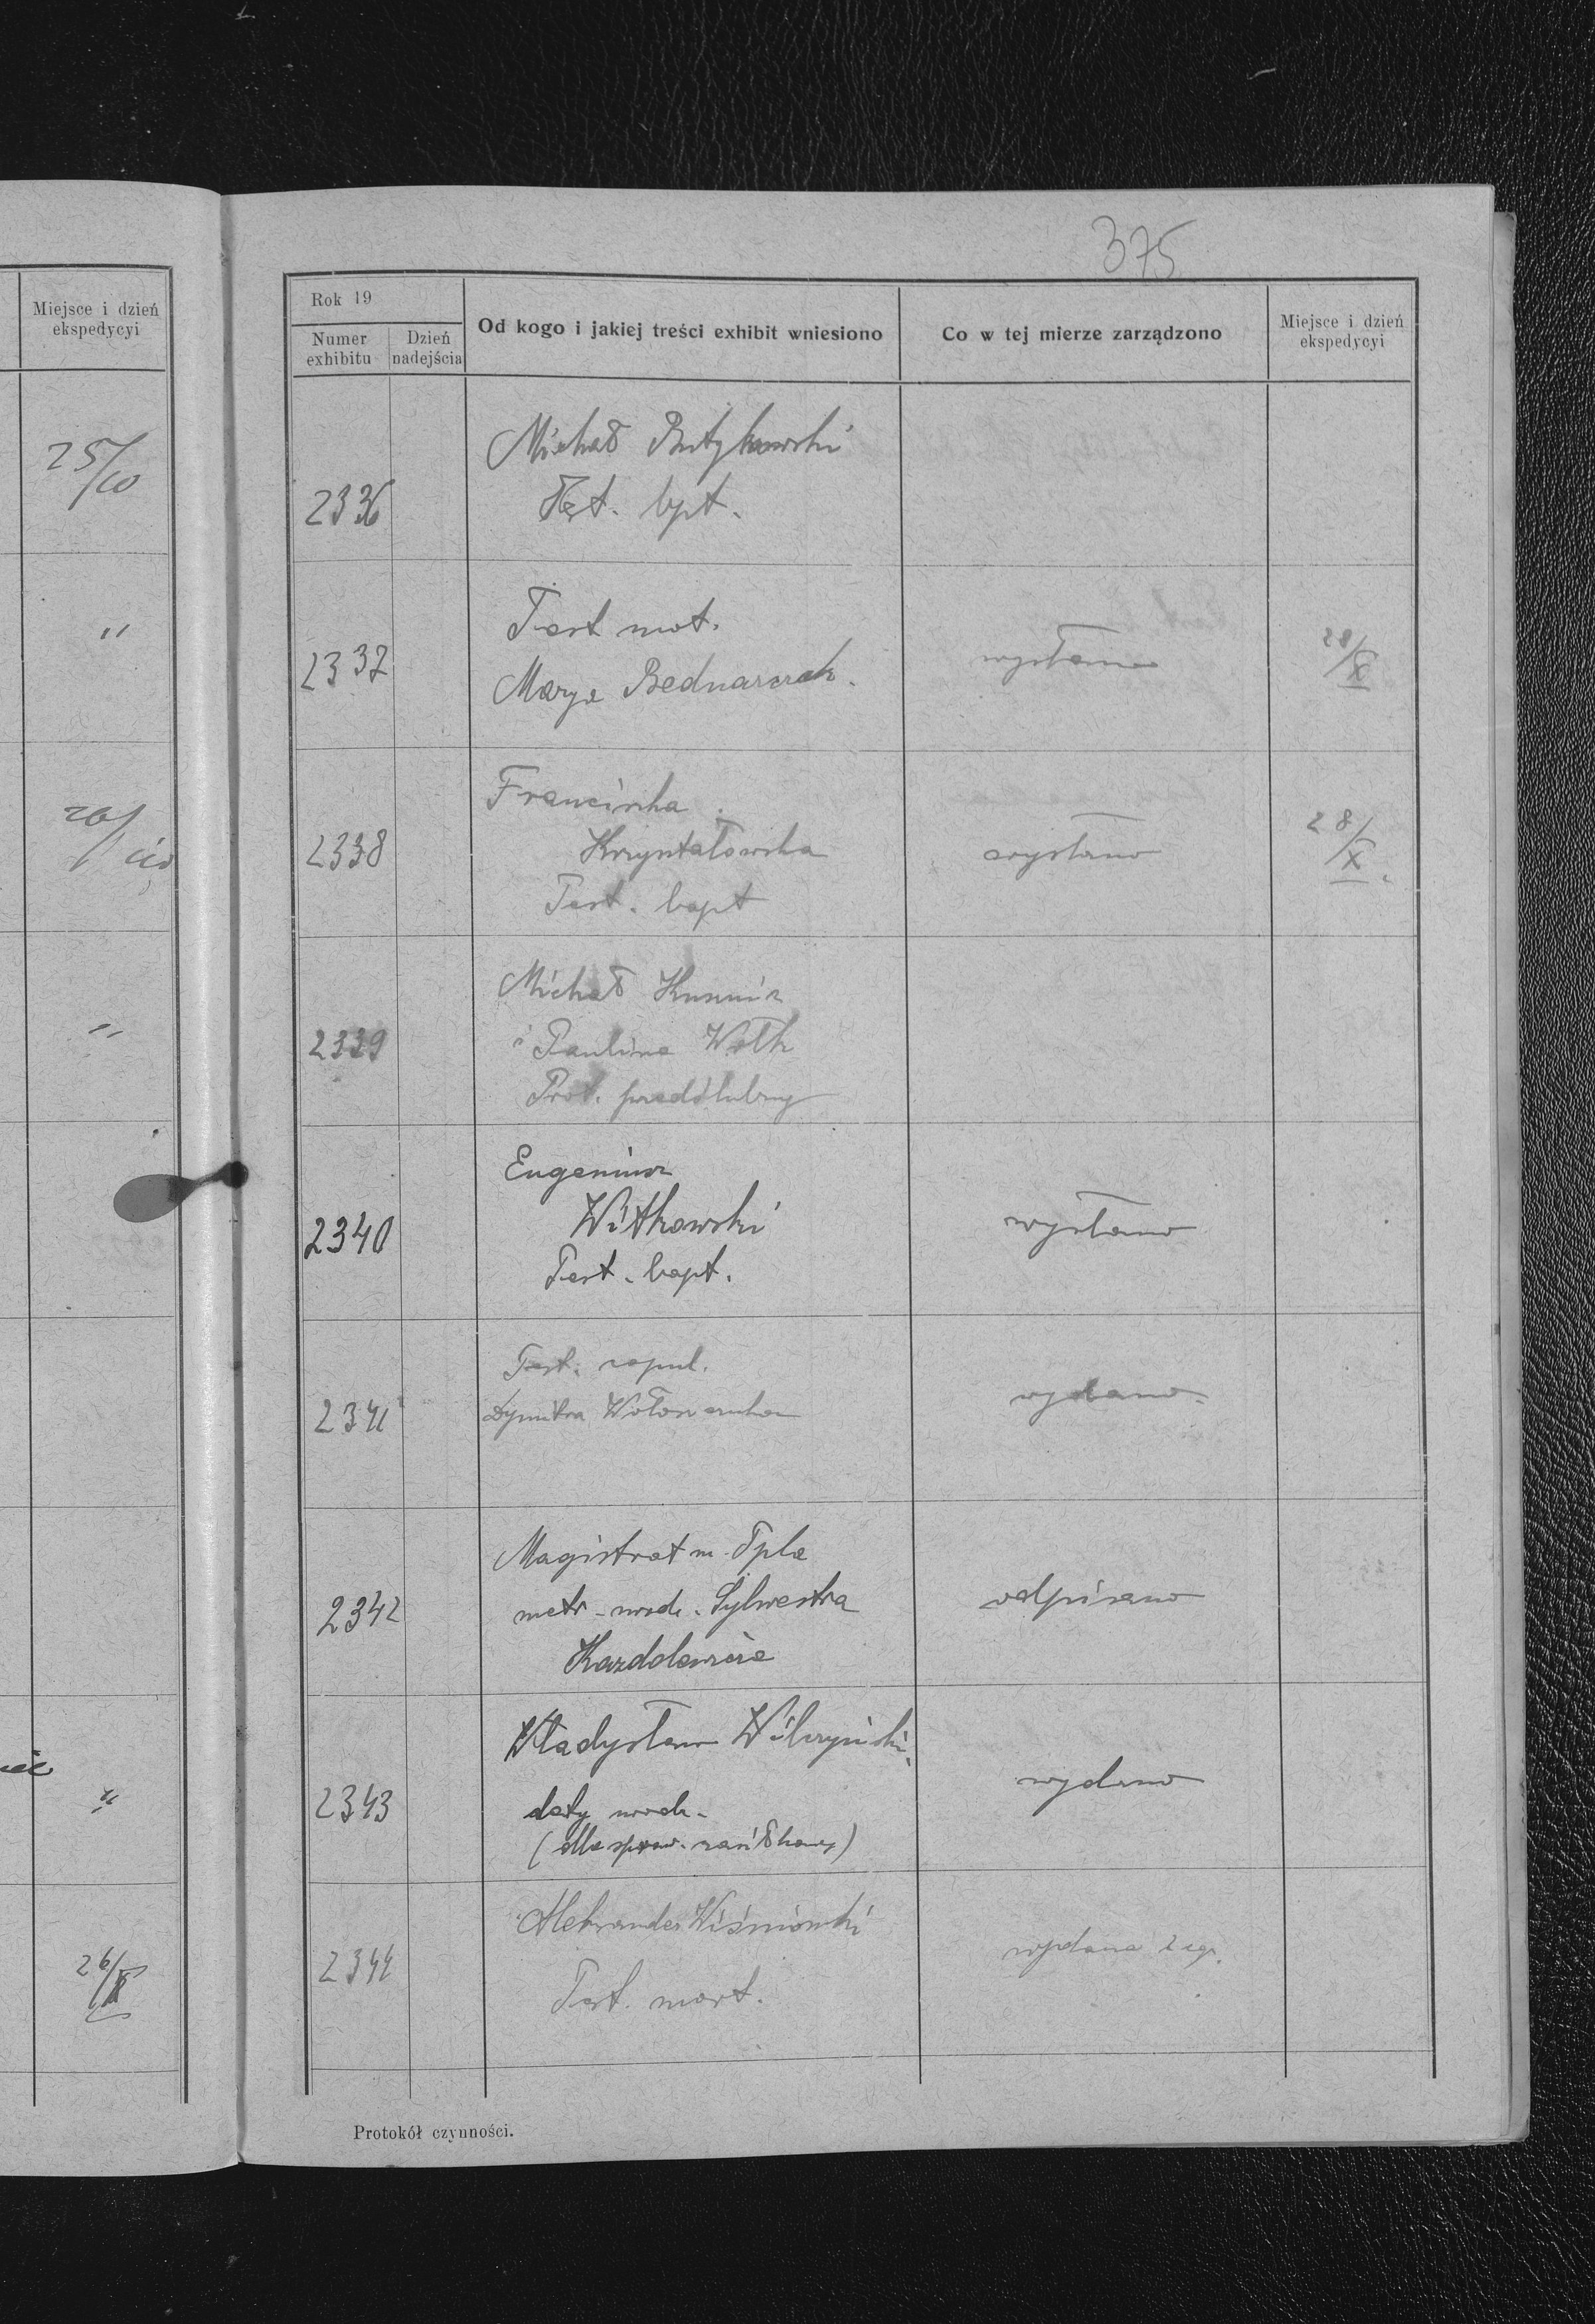 Miejsce i dzień
ekspedycyi
25/10
"
"
"
26/X
375
Rok 19
Numer
exhibitu
Dzień
nadejścia
Od kogo i jakiej treści exhibit wniesiono
Co w tej mierze zarządzono
Miejsce i dzień
ekspedycyi
2336
Michał
Test. bpt.
2337
Test nat.
Marya Bednarczuk.
wysłano
28/X
2338
Franciszka
Kryształowska
Test. bapt
wysłano
28/X.
2339
Michał
i Paulina Wołk
Prot. przedślubny
2340
Eugeniusz
Witkowski
Test. bapt.
wysłano
2341
Test. copul.
Dymitra
wydano
2342
Magistrat m. Tpla
metr. urodz. Sylwestra
odpisano
2343
Władysław Wilczyński
daty urodz.
(dla spraw. zasiłkowej)
wydano
2344
Aleksander Wiśniowski
Test. mort.
wydano 2 egz.
Protokół czynności.